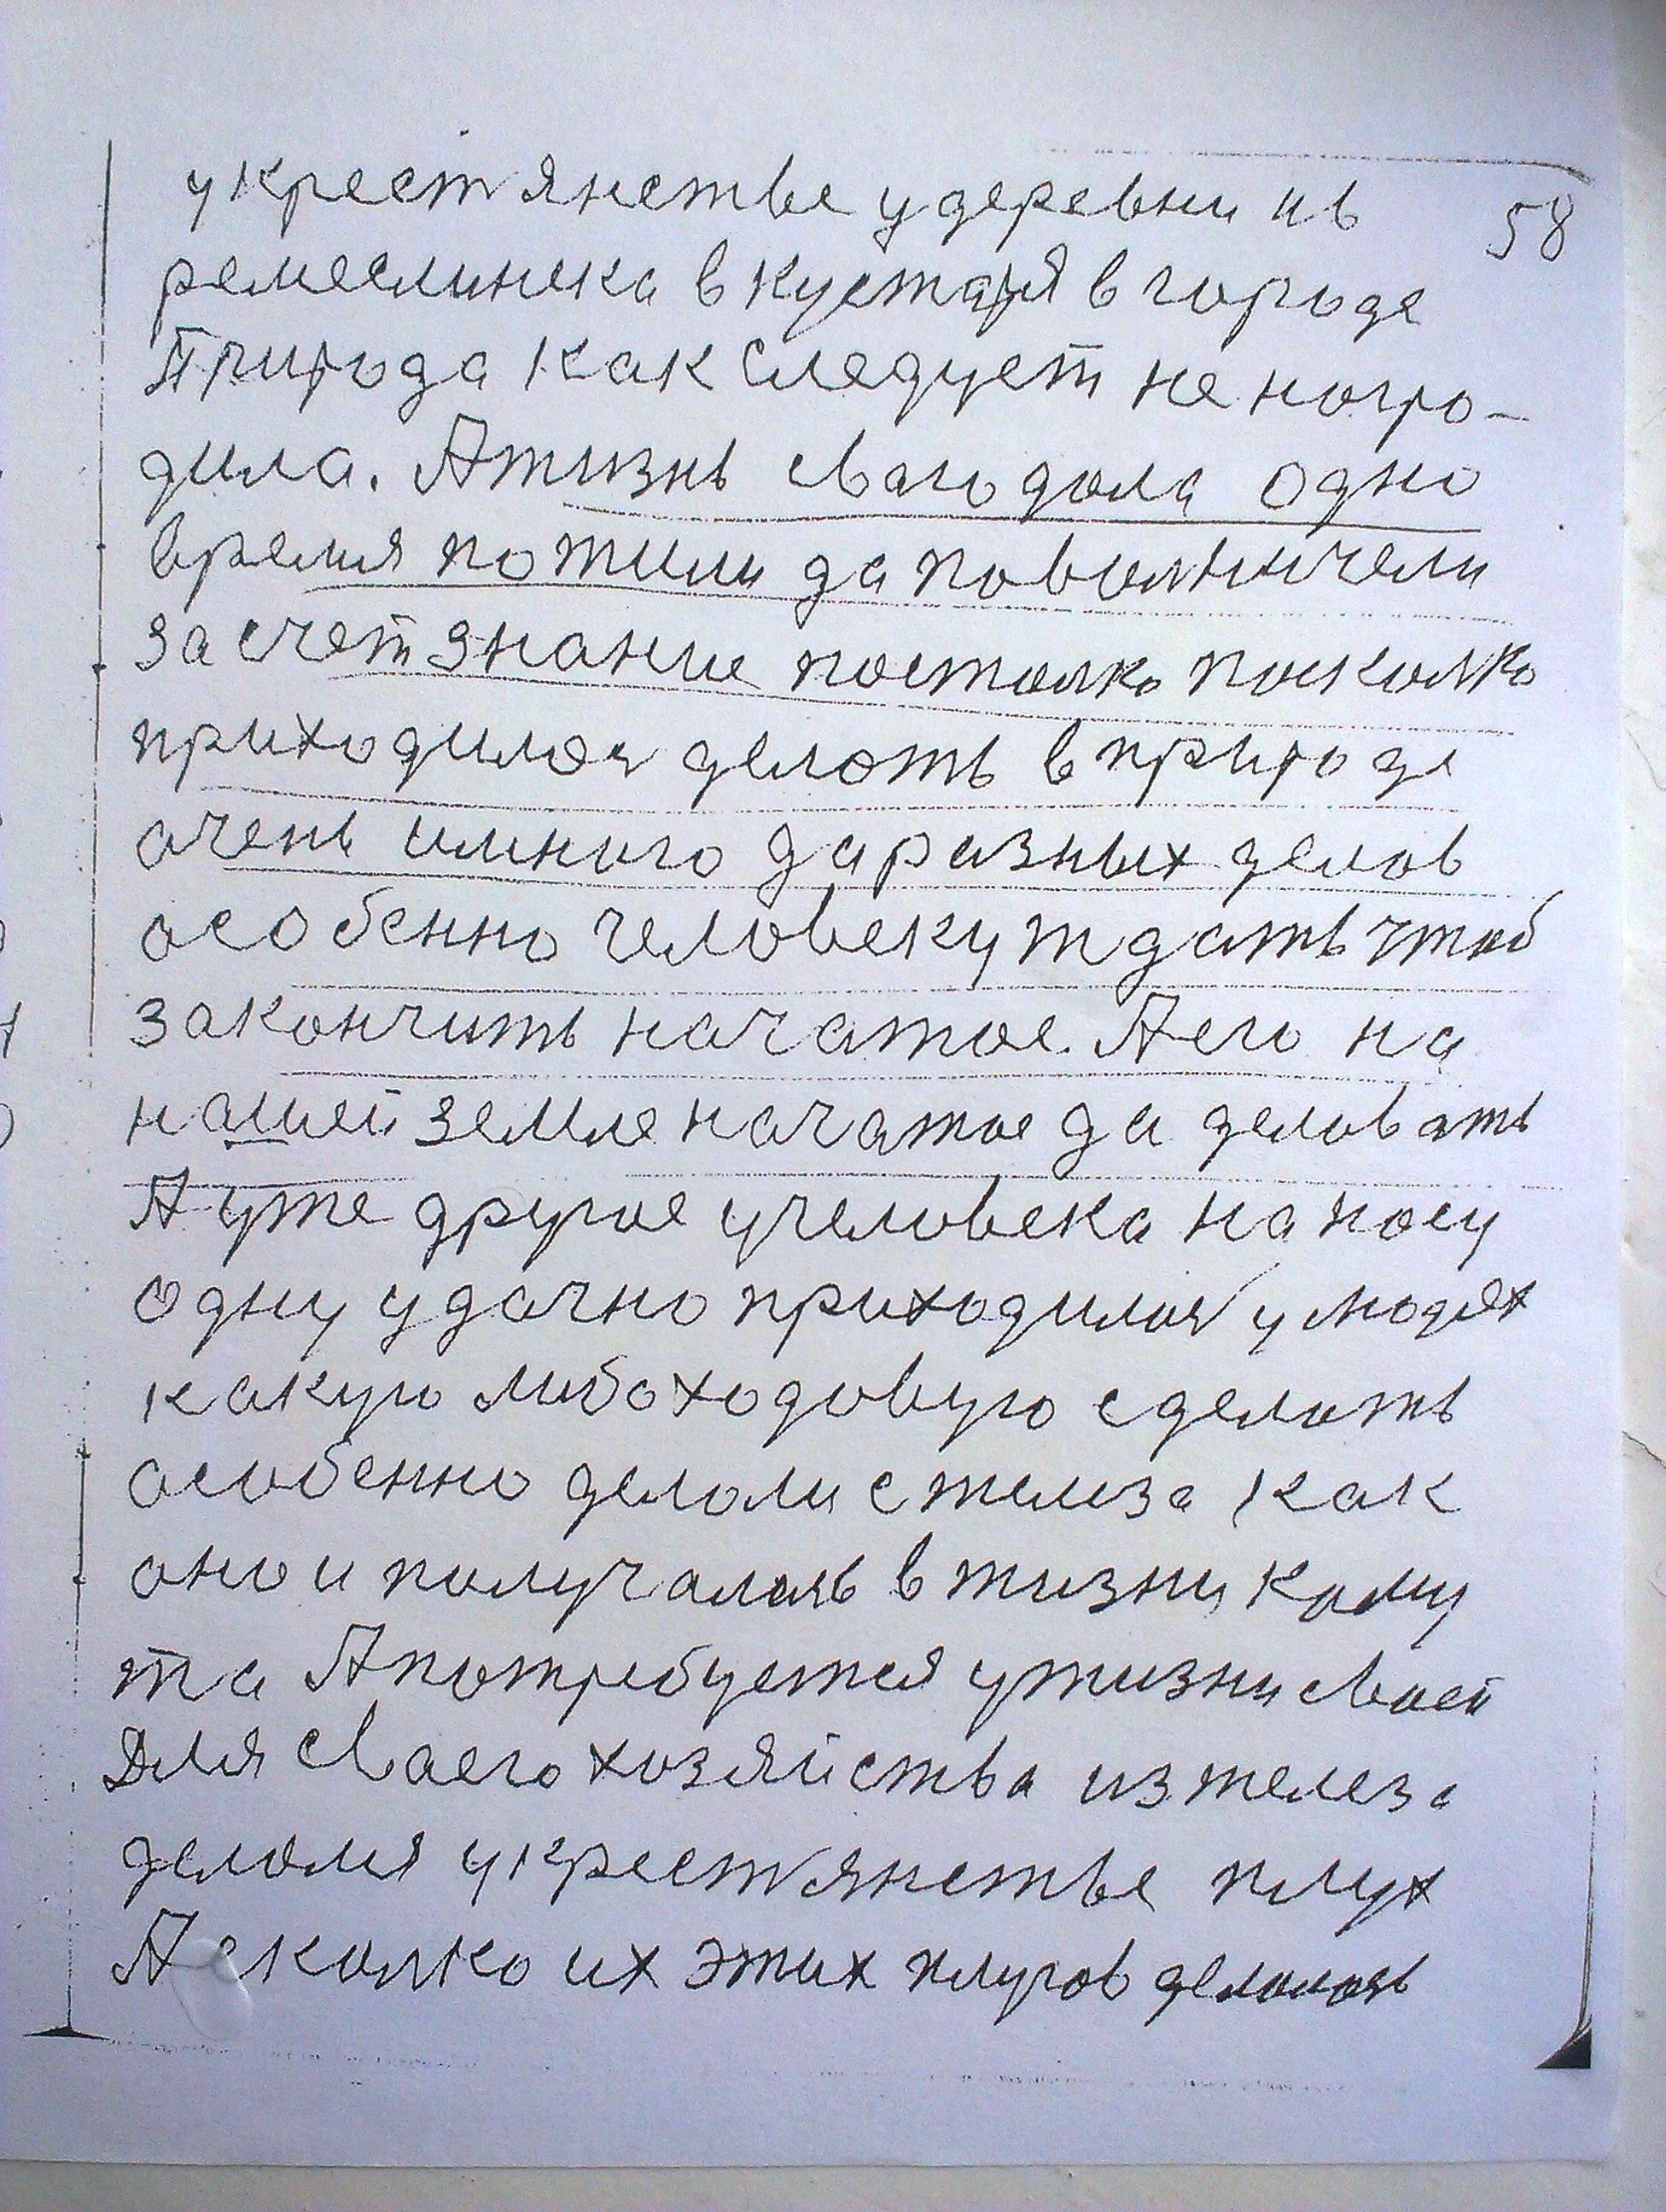 58
укрестянстве у деревни ив
ремеслинека в кустаря в городе
Природа как следует неногро-
дила. А жизнь сваго дала одно
время пожили да поволничели
за счет знание постолко посколко
приходилося делоть в природе
очень много да разных делов
особенно человеку ждать чтоб
закончить начатое. А его на
нашей земле начатое да деловать
А уже другое учеловека на носу
одну удачно приходилося у людях
какую либо ходовую сделоть
особенно делоли с желиза как
оно и получалось в жизни кому
та А потребуется ужизни своей
Для сваего хозяйства из железа
делоля укрестянстве плух
А сколко их этих плугов делолось